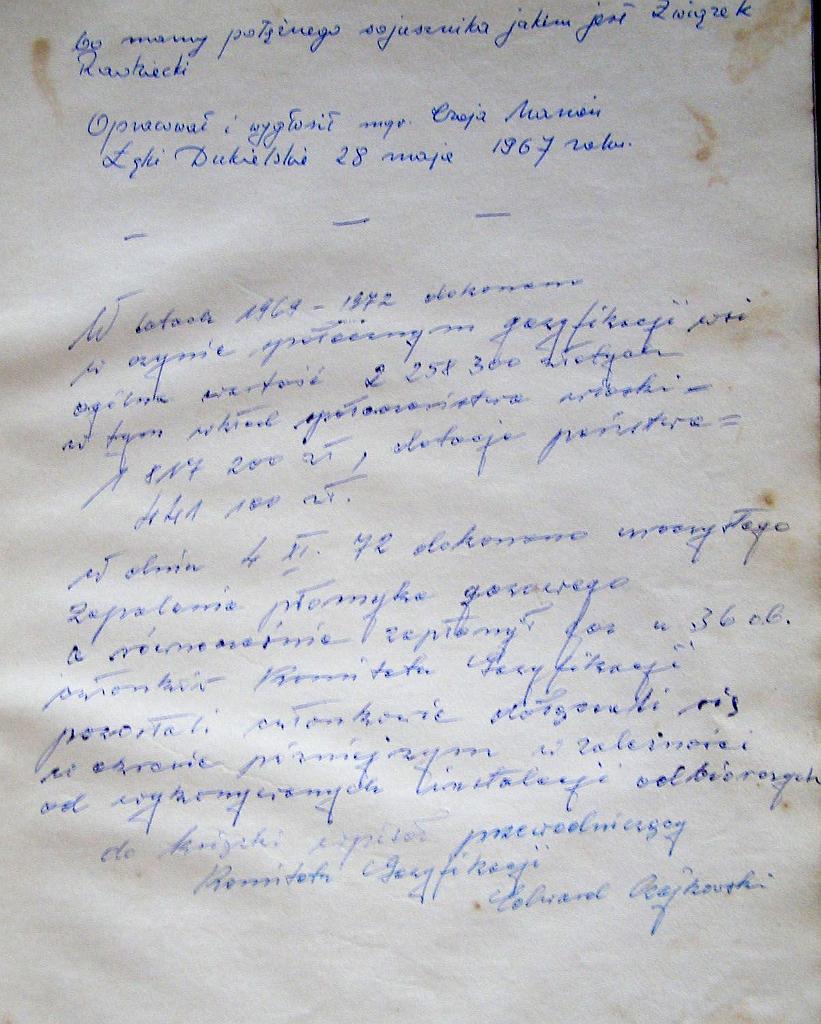 bo mamy potężnego sojusznika jakim jest Związek
Radziecki
Opracował i wygłosił mgr. Czaja Marian
Łęki Dukielskie 28 maja 1967 roku.
— — —
W latach 1969 - 1972 dokonano
w czynie społecznym gazyfikacji wsi
ogólna wartość 2 258 300 złotych
w tym wkład społeczeństwa wioski =
1 817 200 zł, dotacja państwa =
441 100 zł.
W dniu 4 XI. 72 dokonano uroczystego
zapalenia płomyka gazowego
a równocześnie zapłonął gaz u 36 ob.
członków Komitetu Gazyfikacji
pozostali członkowie dołączali się
w okresie późniejszym w zależności
od wykonywanych instalacji odbiorczych
do książki wpisał przewodniczący
Komitetu Gazyfikacji
Edward Czajkowski